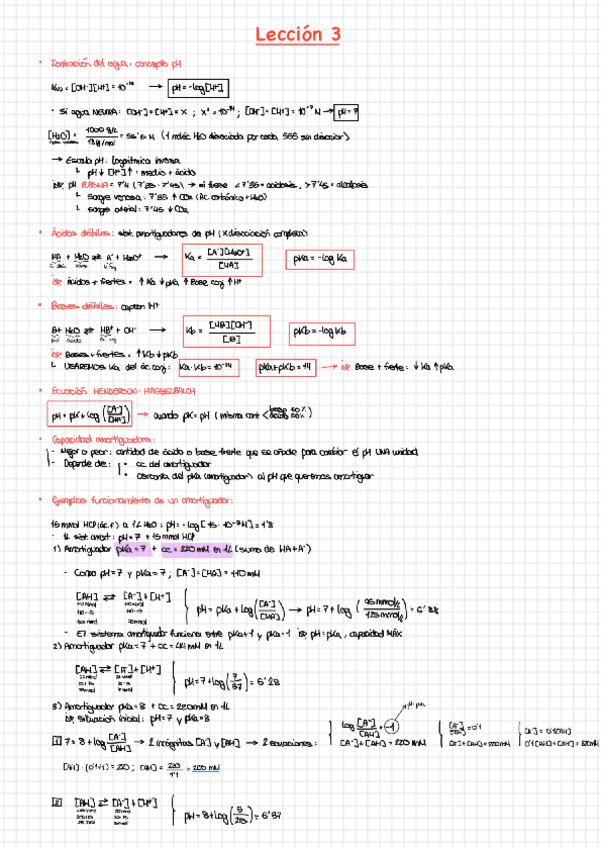 Lección 3
• Ionización del agua: concepto pH
Kw = [OH⁻][H⁺] = 10⁻¹⁴ → pH = -log[H⁺]
• Si agua NEUTRA: [OH⁻] = [H⁺] = X ; X² = 10⁻¹⁴ ; [OH⁻] = [H⁺] = 10⁻⁷ M → pH = 7
[H₂O] = 1000 g/L / 18 g/mol = 55'5 M (1 moléc H₂O disociada por cada 555 sin disociar)
→ Escala pH: logarítmica inversa
↳ pH ↓ [H⁺] ↑ : medio + ácido
pH = 7'4 (7'35 - 7'45) → si fuese < 7'35 = acidosis, > 7'45 = alcalosis
↳ Sangre venosa: 7'35 ↑ CO₂ (Ác. carbónico + H₂O)
↳ Sangre arterial: 7'45 ↓ CO₂
• Ácidos débiles: sist. amortiguadores de pH (X disociación completa)
HA + H₂O ⇌ A⁻ + H₃O⁺ → Ka = [A⁻][H₃O⁺] / [HA] pKa = -log Ka
Ácidos + fuertes = ↑ Ka ↓ pKa ↑ Base conj ↑ H⁺
• Bases débiles: captan H⁺
B + H₂O ⇌ HB⁺ + OH⁻ → Kb = [HB][OH⁻] / [B] pKb = -log Kb
Bases + fuertes = ↑ Kb ↓ pKb
↳ USAREMOS Ka del ác. conj: Ka · Kb = 10⁻¹⁴ pKa + pKb = 14 → Base + fuerte: ↓ Ka ↑ pKa
• Ecuación HENDERSON - HASSELBALCH
pH = pK + log ([A⁻]/[HA]) → cuando pK = pH (misma cant < base 50% ácido 50%)
• Capacidad amortiguadora:
- Mejor o peor: cantidad de ácido o base fuerte que se añade para cambiar el pH UNA unidad
- Depende de: • cc del amortiguador
• cercanía del pKa (amortiguador) al pH que queremos amortiguar
• Ejemplos funcionamiento de un amortiguador:
15 mmol HCl (ác. f) a 1L H₂O: pH = -log [15 · 10⁻³ M] = 1'8
- 1L sist. amort: pH = 7 + 15 mmol HCl
1) Amortiguador pKa = 7 + cc = 220 mM en 1L (suma de HA + A⁻)
- Como pH = 7 y pKa = 7 ; [A⁻] = [HA] = 110 mM
[AH] ⇌ [A⁻] + [H⁺]
pH = pKa + log ([A⁻]/[HA]) → pH = 7 + log (95 mmol/L / 125 mmol/L) = 6'88
- El sistema amortiguador funciona entre pKa + 1 y pKa - 1 pH = pKa, capacidad MÁX
2) Amortiguador pKa = 7 + cc = 44 mM en 1L
[AH] ⇌ [A⁻] + [H⁺]
pH = 7 + log (7/37) = 6'28
3) Amortiguador pKa = 8 + cc = 220 mM en 1L
Situación inicial: pH = 7 y pKa = 8
1 7 = 8 + log [A⁻]/[AH] → 2 incógnitas [A⁻] y [AH] → 2 ecuaciones: log [A⁻]/[AH] = -1 [A⁻]/[AH] = 0'1 [A⁻] = 0'1[AH]
[A⁻] + [AH] = 220 mM [A⁻] + [AH] = 220 mM 0'1[AH] + [AH] = 220 mM
[AH] · (0'1 + 1) = 220 ; [AH] = 220/1'1 = 200 mM
2 [AH] ⇌ [A⁻] + [H⁺]
pH = 8 + log (5/215) = 6'37